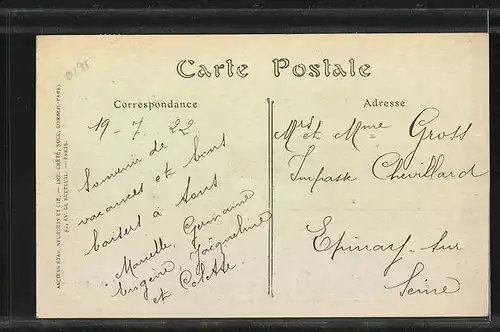 0198
Carte Postale
Correspondance
19-7.22
Souvenir de
vacances et bons
baisers à tous
Marcelle, Germaine
Eugène, Jacqueline
et Colette
Adresse
Mrs et Mme Gross
Impasse Chevillard
Epinay-sur
Seine
ANCIENS ETAB. NEURDEIN ET CIE. — IMP. CRÉTÉ, SUCC. CORBEIL-PARIS
52, AV. DE BRETEUIL. — PARIS.